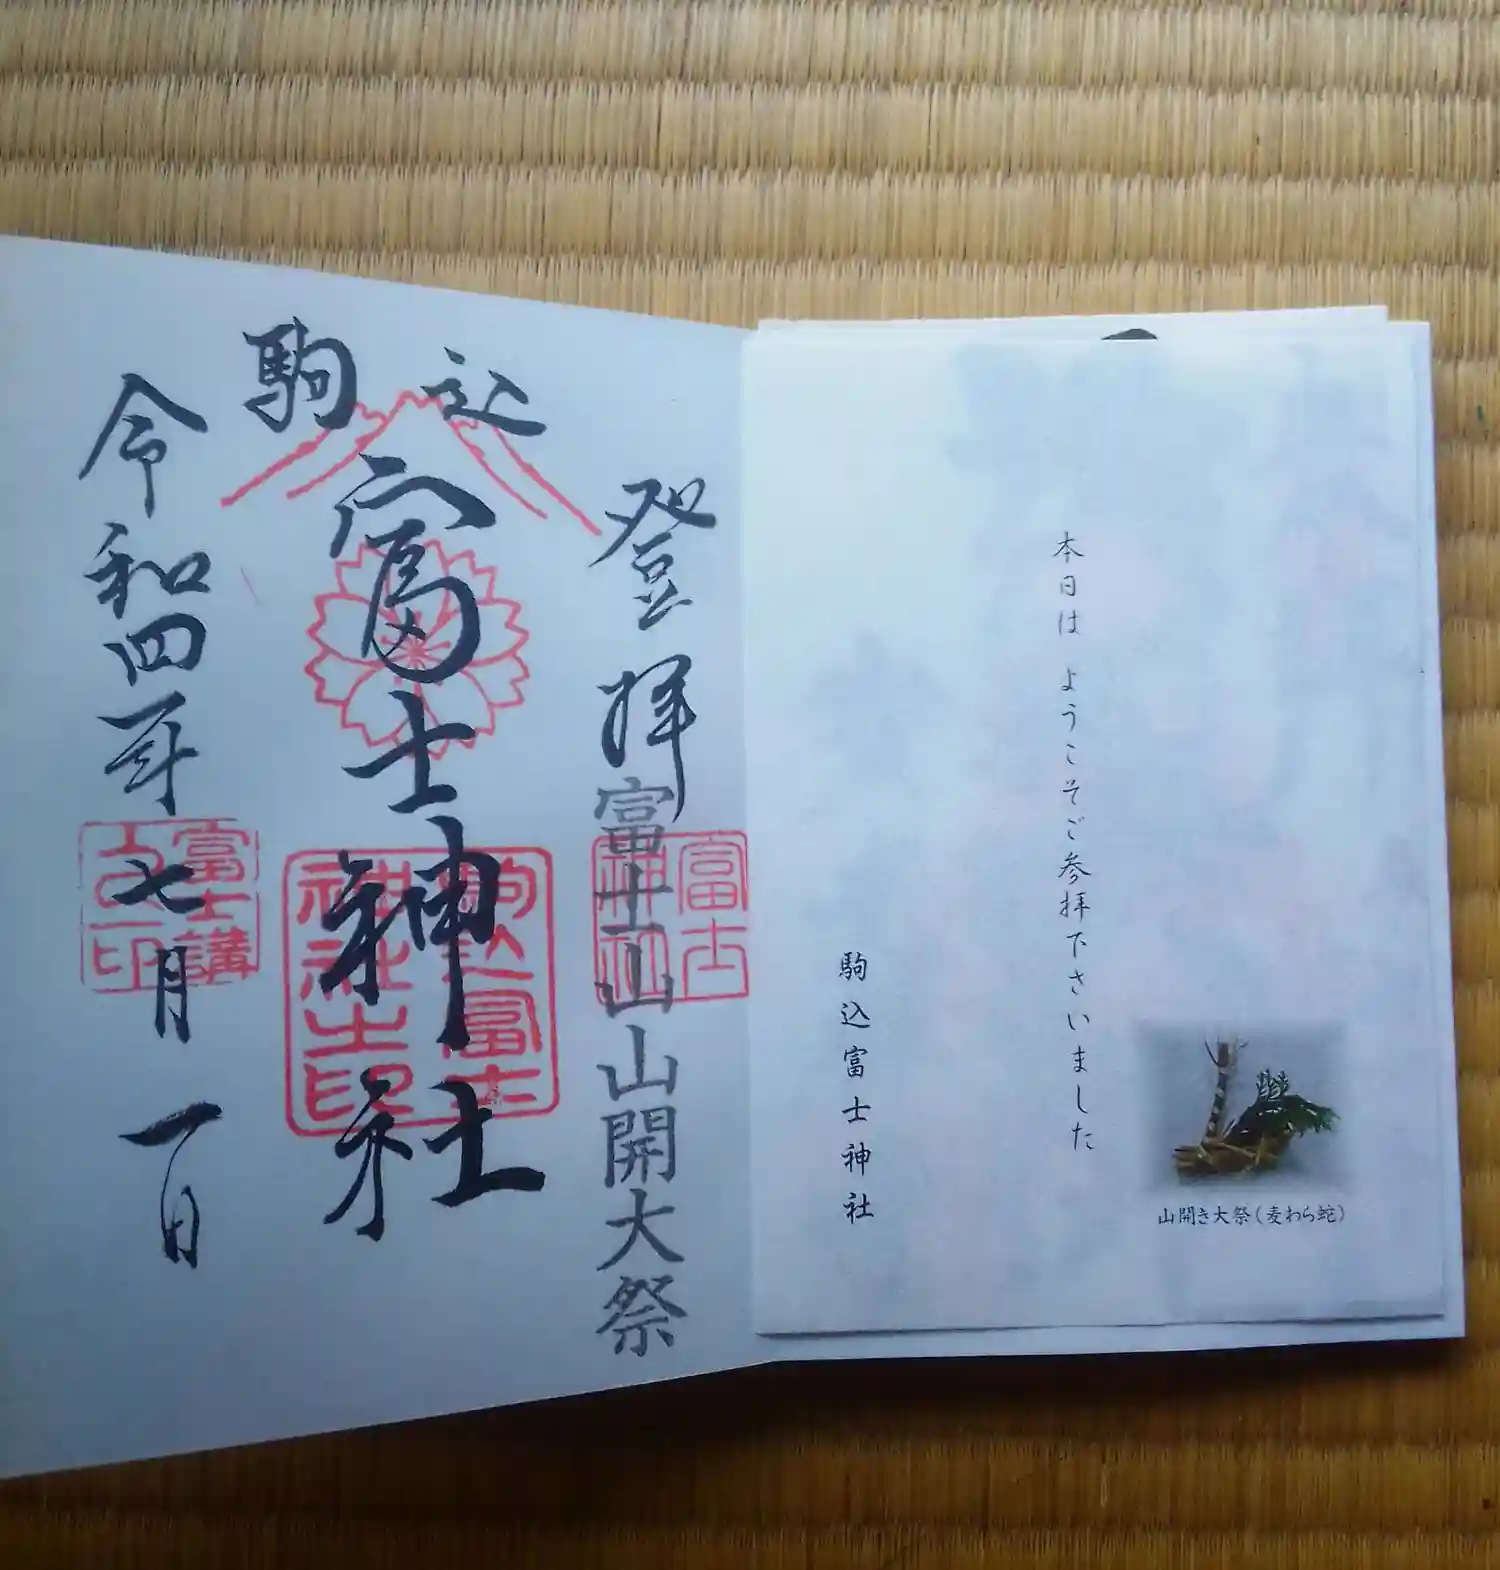 本日は ようこそご参拝下さいました
山開き大祭(麦わら蛇)
駒込富士神社
登拝
富士山山開大祭
富士神社
駒込
富士神社
駒込富士神社之印
令和四年七月一日
富士講